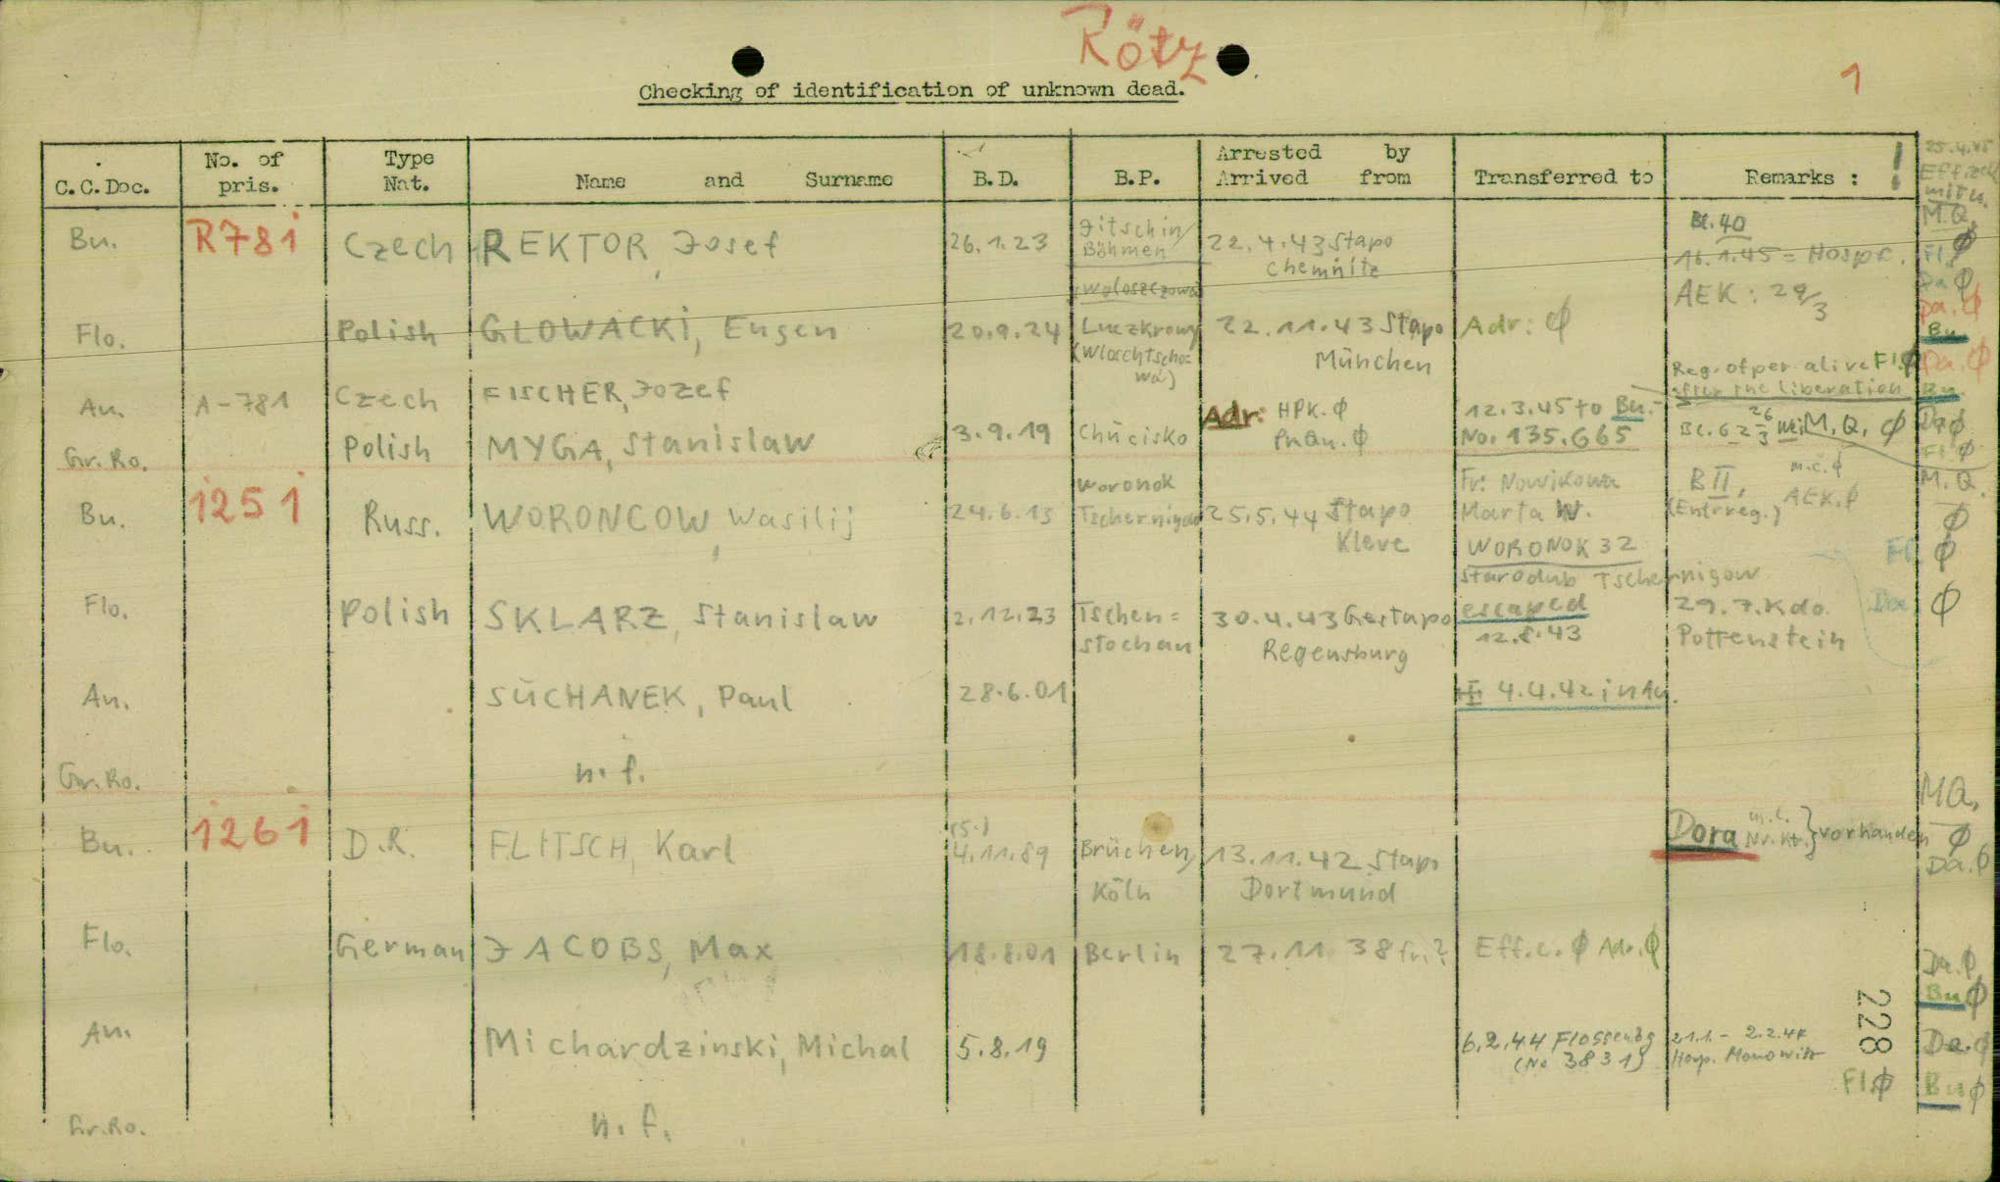 Rötz
1
Checking of identification of unknown dead.
C.C.Doc. No. of pris. Type Nat. Name and Surname B.D. B.P. Arrested by Arrived from Transferred to Remarks : !
25.4.45
M.Q.
Bu. R781 Czech REKTOR, Josef 26.1.23 Jitschin/ Böhmen 22.4.43 Stapo Chemnitz Bl. 40
16.1.45 = Hospr. Fl. ϕ
AEK: 29/3 Da ϕ
Da. ϕ
Flo. Polish GLOWACKi, Eugen 20.9.24 Woloszczowa Luczkrowy (Wloschtscho= wa) 22.11.43 Stapo München Adr: ϕ Bu
Reg. of per alive Fl. ϕ Da. ϕ
after the liberation Bu
An. A-781 Czech FISCHER, Jozef 12.3.45 to Bu.-
Gr.Ro. Polish MYGA, Stanislaw 3.9.19 Chucisko Adr: HPK. ϕ No. 135.665 M.Q. ϕ
Fl. ϕ
Bu. 1251 Russ. WORONCOW, Wasilij 24.6.13 Woronok 25.5.44 Stapo Kleve Fr: Nowikowa Marta W. B II, (Entrreg.) m.c. ϕ AEK. ϕ M.Q. ϕ
WORONOK 32
Starodub Tschernigow Fl. ϕ
Flo. Polish SKLARZ, Stanislaw 2.12.23 Tschen= stochau 30.4.43 Gestapo Regensburg escaped 12.8.43 29.7. Kdo. Pottenstein Da ϕ
An. SUCHANEK, Paul 28.6.01 4.4.42 in Au.
Gr.Ro. n. f.
MQ.
Bu. 1261 D.R. FLITSCH, Karl (5.) 4.11.89 Brüchen/ Köln 13.11.42 Stapo Dortmund Dora m.c. Nr.Kt. } vorhanden ϕ
Da. ϕ
Flo. German JACOBS, Max 18.8.01 Berlin 27.11.38 fr.? Eff.c. ϕ Adr. ϕ Da. ϕ
Bu ϕ
An. Michardzinski, Michal 5.8.19 6.2.44 Flossenbg (No 3831) 21.1.- 2.2.44 Hosp. Monowitz Da. ϕ
Fl. ϕ Bu ϕ
Gr.Ro. n. f.
228